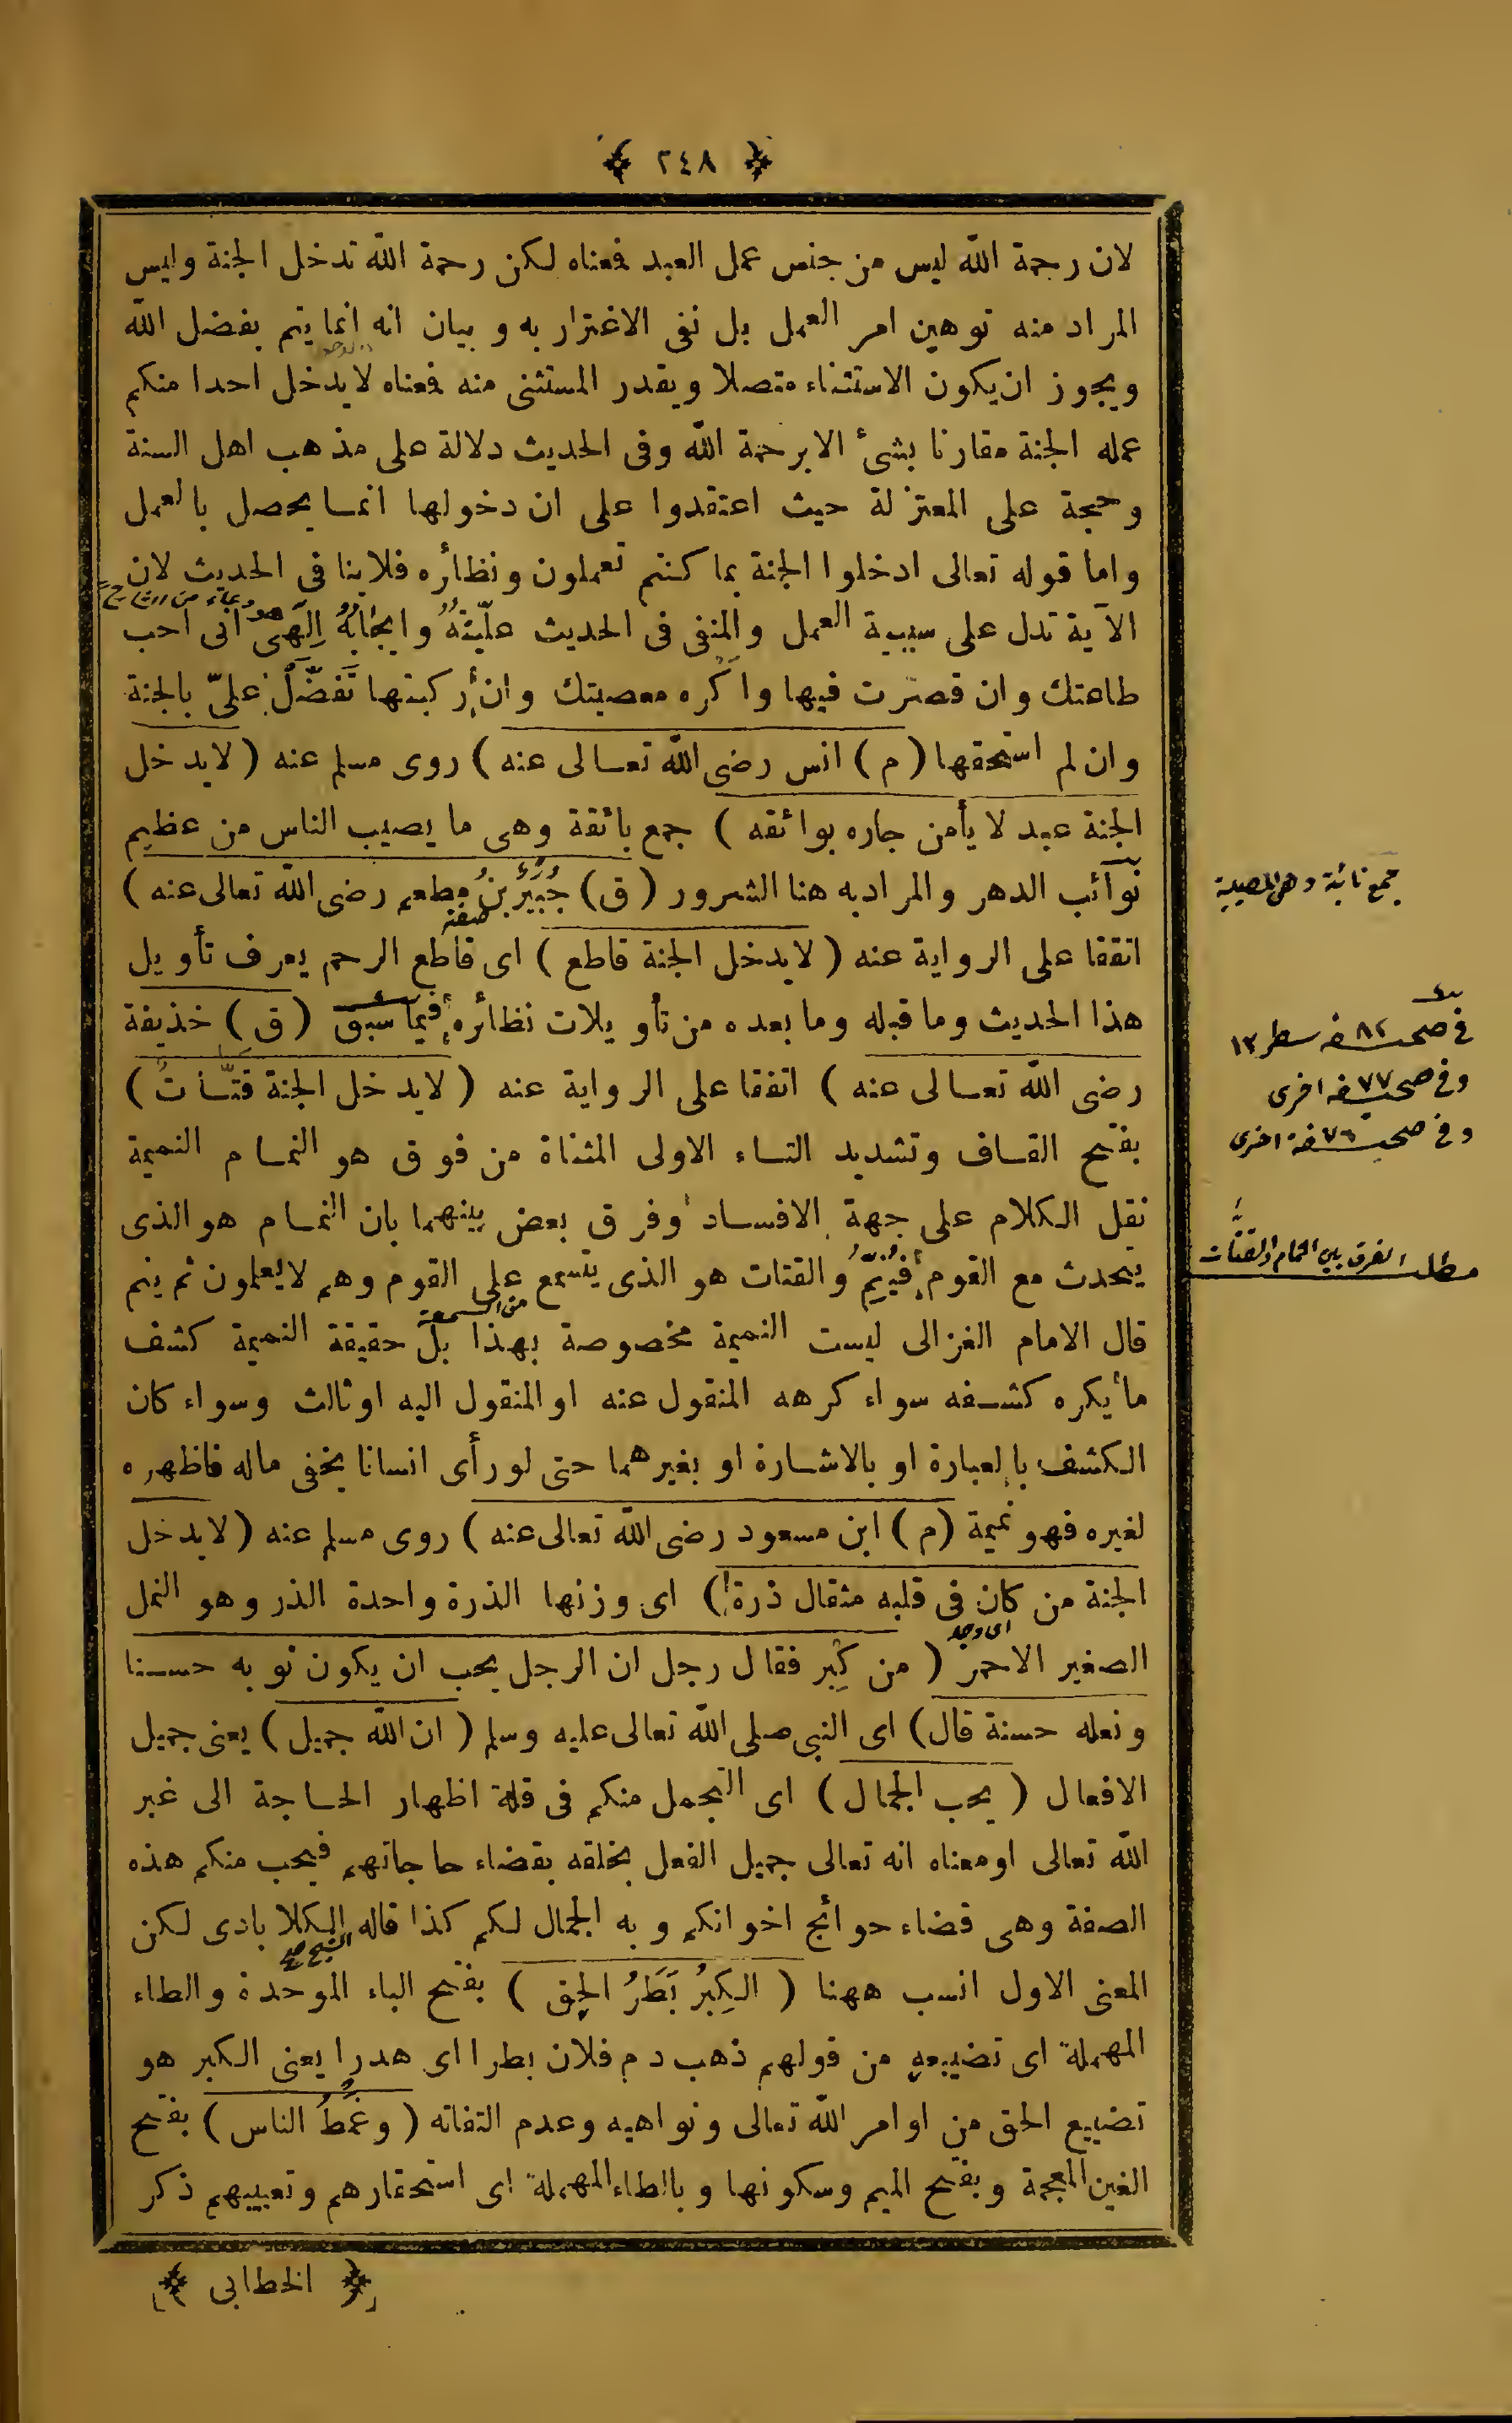 ﴿ ٢٤٨ ﴾
لان رحمة الله ليس من جنس عمل العبد فمعناه لكن رحمة الله تدخل الجنة وليس
المراد منه توهين امر العمل بل نفى الاغترار به و بيان انه انما يتم بفضل الله
ويجوز ان يكون الاستثناء متصلا ويقدر المستثنى منه فمعناه لايدخل احدا منكم
عمله الجنة مقارنا بشئ الا برحمة الله وفى الحديث دلالة على مذهب اهل السنة
وحجة على المعتزلة حيث اعتقدوا على ان دخولها انمـا يحصل بالعمل
واما قوله تعالى ادخلوا الجنة بما كنتم تعملون ونظائره فلاينا فى الحديث لان
الآية تدل على سببية العمل والمنفى فى الحديث علّيّتهُ وايجابُهُ اِلٰهى انى احب
طاعتك وان قصرت فيها واَكره معصيتك وان ركبتها تَفَضَّلْ علىّ بالجنة
وان لم استحقها (م) انس رضى الله تعـالى عنه) روى مسلم عنه (لايدخل
الجنة عبد لا يأمن جاره بوائقه) جمع بائقة وهى ما يصيب الناس من عظيم
نوآئب الدهر والمراد به هنا الشرور (ق) جُبَيْرُ بنُ مطعم رضى الله تعالى عنه)
جمع نائبة وهى المصيبة
اتفقا على الرواية عنه (لايدخل الجنة قاطع) اى قاطع الرحم يعرف تأويل
صفة
هذا الحديث وما قبله وما بعده من تأويلات نظائره فيما سبق (ق) حذيفة
فى صحيفه ٨٢ سطر ١٣
رضى الله تعـالى عنه) اتفقا على الرواية عنه (لايدخل الجنة قَتَّـاتٌ)
وفى صحيفه ٧٧ اخرى
بفتح القـاف وتشديد التـاء الاولى المثناة من فوق هو النمـام النميمة
وفى صحيفة ٧٦ اخرى
نقل الكلام على جهة الافسـاد وفرق بعض بينهما بان النمـام هو الذى
يتحدث مع القوم فَيَنِمُّ والقتات هو الذى يتسمع على القوم وهم لايعلمون ثم ينم
مطلب الفرق بين النمام والقتَّات
قال الامام الغزالى ليست النميمة مخصوصة بهذا بل حقيقة النميمة كشف
ما يكره كشـفه سواء كرهه المنقول عنه او المنقول اليه او ثالث وسواء كان
الكشف بالعبارة او بالاشـارة او بغيرهما حتى لو رأى انسانا يخفى ماله فاظهره
لغيره فهو نميمة (م) ابن مسعود رضى الله تعالى عنه) روى مسلم عنه (لايدخل
الجنة من كان فى قلبه مثقال ذرة) اى وزنها الذرة واحدة الذر وهو النمل
الصغير الاحمر (من كِبر فقال رجل ان الرجل يحب ان يكون ثوبه حسـنا
ونعله حسنة قال) اى النبى صلى الله تعالى عليه وسلم (ان الله جميل) يعنى جميل
الافعال (يحب الجمال) اى التجمل منكم فى قلة اظهار الحـاجة الى غير
الله تعالى او معناه انه تعالى جميل الفعل بخلقه بقضاء حاجاتهم فيحب منكم هذه
الصفة وهى قضاء حوائج اخوانكم و به الجمال لكم كذا قاله الكلا باذى لكن
المعنى الاول انسب ههنا (الكِبْرُ بَطَرُ الحق) بفتح الباء الموحدة والطاء
المهملة اى تضييعه من قولهم ذهب دم فلان بطرا اى هدرا يعنى الكبر هو
تضييع الحق من اوامر الله تعالى ونواهيه وعدم التفاته (وغَمْطُ الناس) بفتح
الغين المعجمة و بفتح الميم وسكونها و بالطاء المهملة اى استحقارهم وتعييبهم ذكر
﴿ الخطابى ﴾